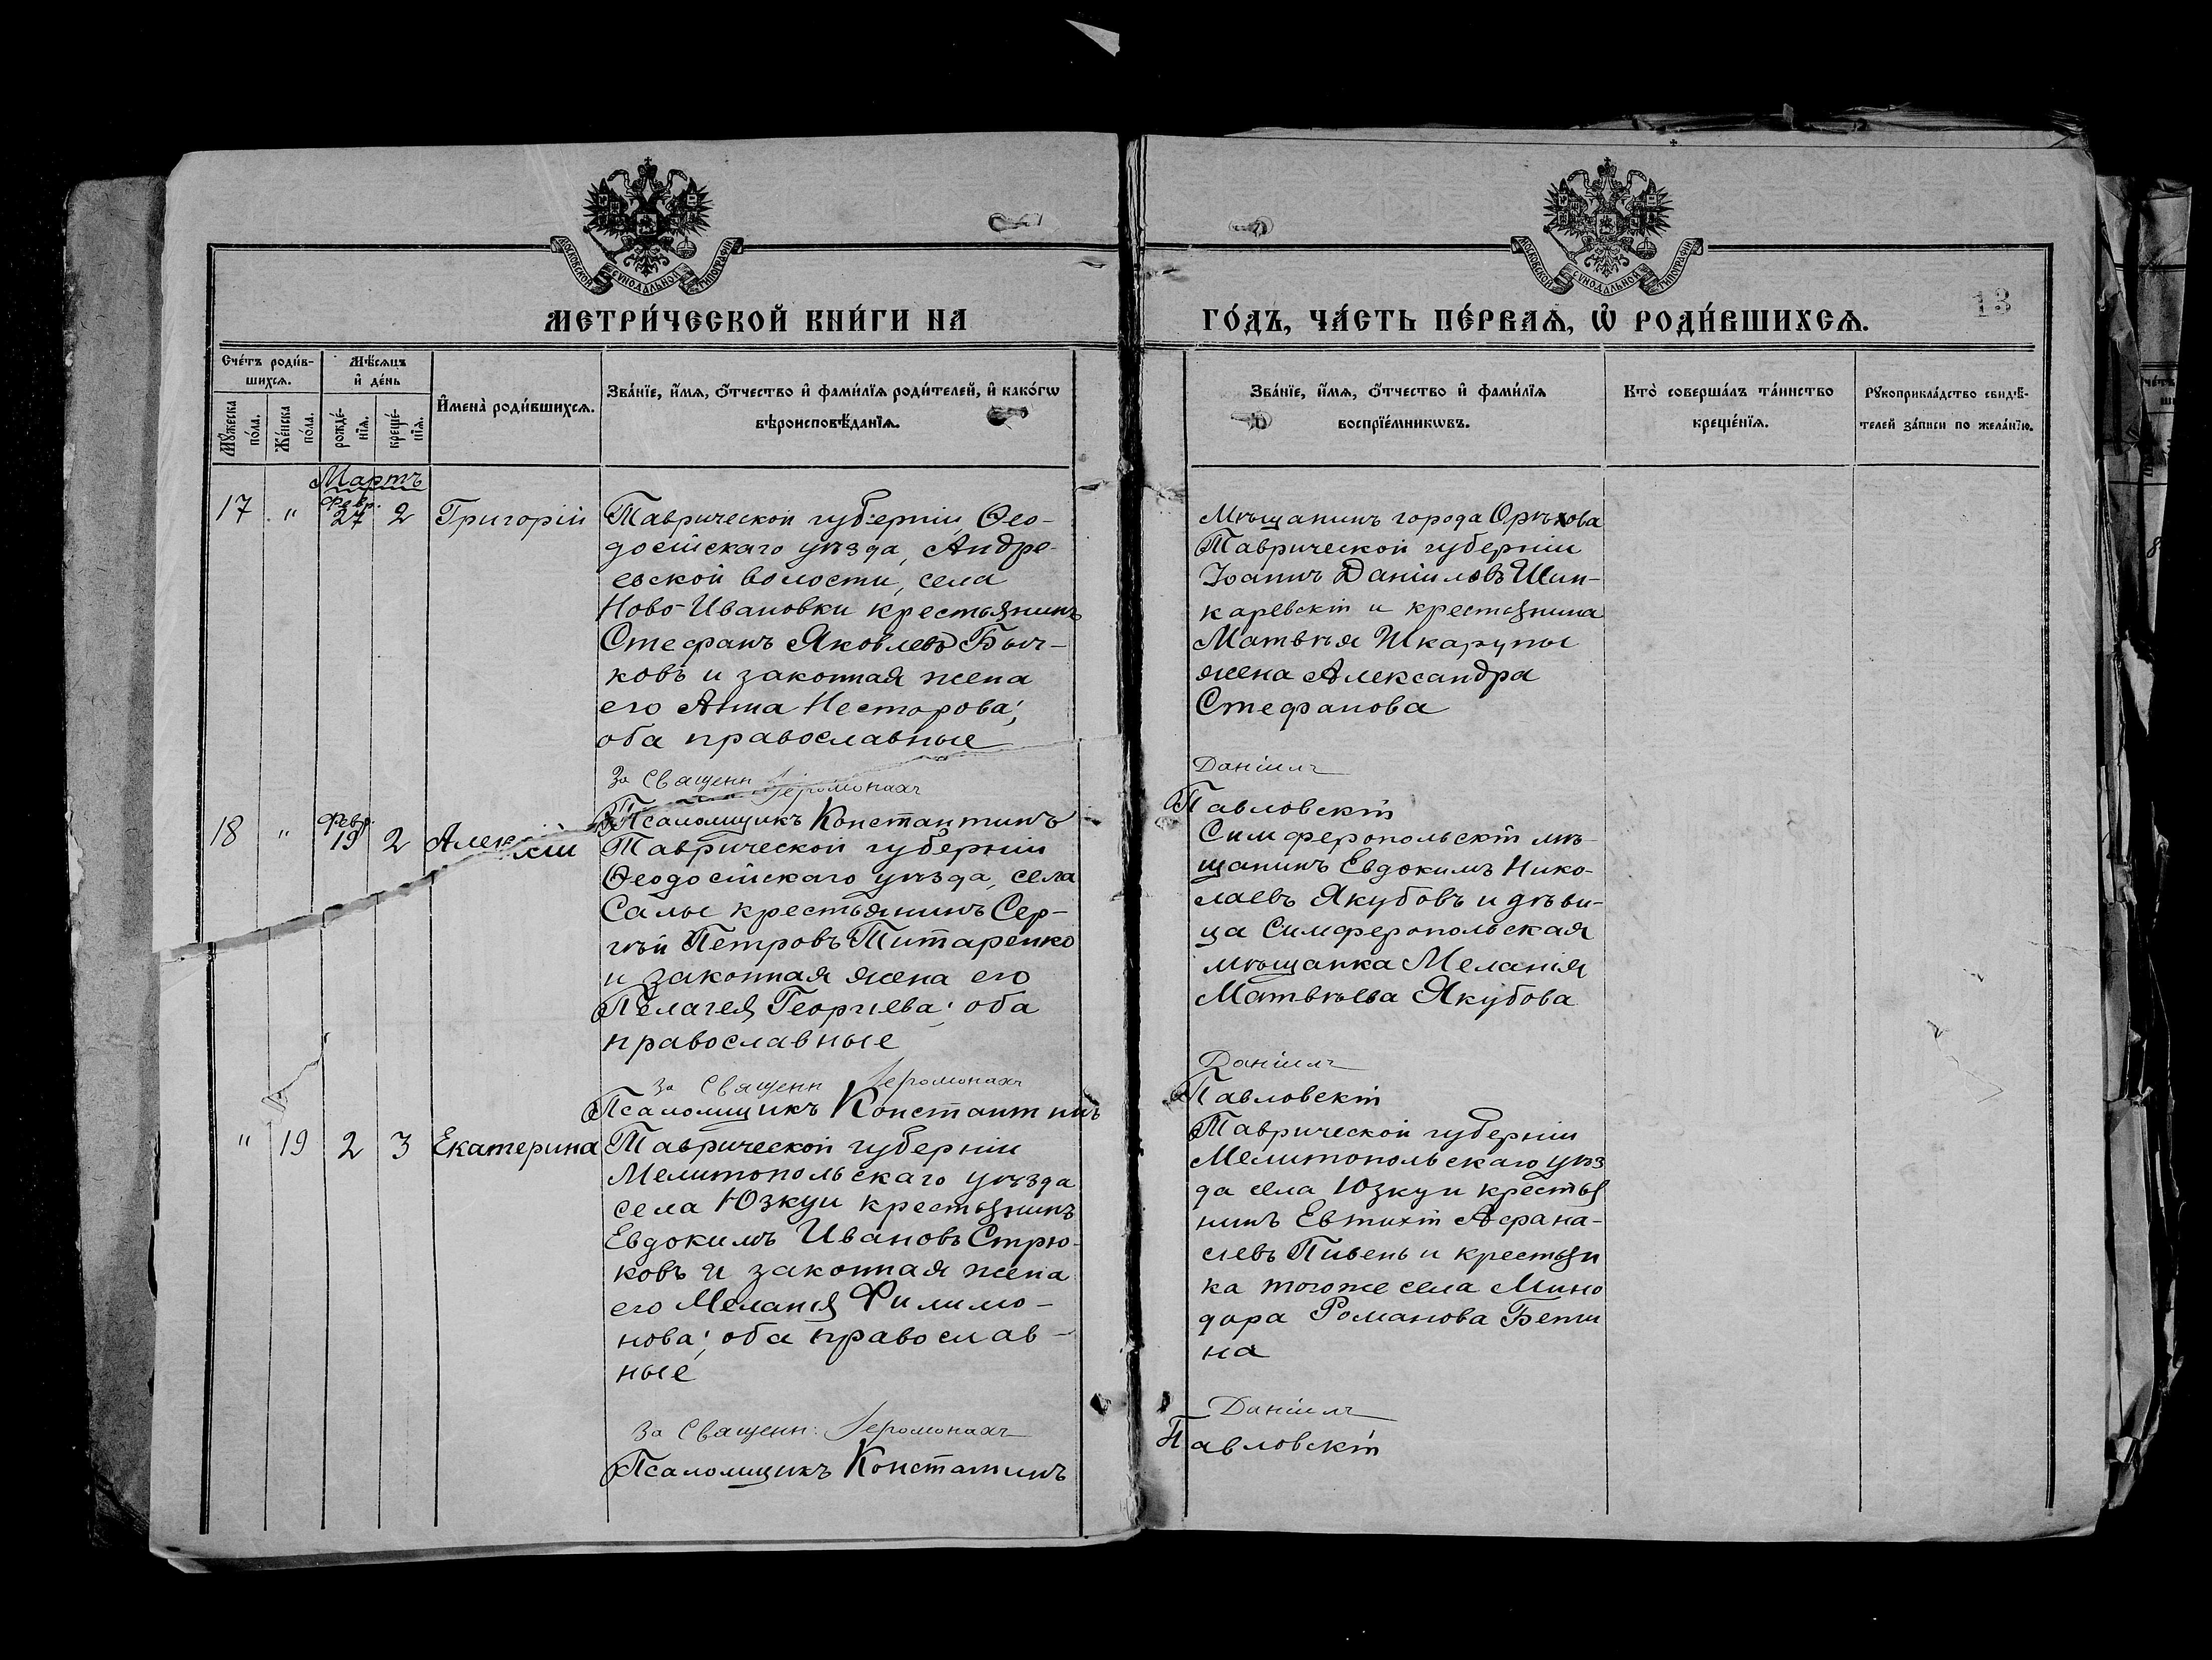 МОСКОВСКОЙ СѴНОДАЛЬНОЙ ТИПОГРАФІИ
МОСКОВСКОЙ СѴНОДАЛЬНОЙ ТИПОГРАФІИ
МЕТРИ́ЧЕСКОЙ КНИ́ГИ НА
ГО́ДЪ, ЧА́СТЬ ПЕ́РВАѦ, Ѡ҆ РОДИ́ВШИХСѦ.
13
Сче́тъ роди́в-
шихсѧ.
Мꙋ́жеска
по́ла.
Же́нска
по́ла.
Мѣ́сѧцъ
и҆ де́нь
рожде́-
нїѧ.
креще́-
нїѧ.
И҆мена̀ роди́вшихсѧ.
Зва́нїе, и҆́мѧ, ѻ҆́тчество и҆ фами́лїѧ роди́телей, и҆ како́гѡ
вѣроисповѣ́данїѧ.
Зва́нїе, и҆́мѧ, ѻ҆́тчество и҆ фами́лїѧ
воспрїе́мникѡвъ.
Кто̀ соверша́лъ та́инство
креще́нїѧ.
Рꙋкоприкла́дство свидѣ́-
телей за́писи по жела́нїю.
Мартъ
17 " Февр. 27 2 Григорій
Таврической губерніи Ѳео-
досійскаго уѣзда, Андре-
евской волости, села
Ново-Ивановки крестьянинъ
Стефанъ Яковлевъ Быч-
ковъ и законная жена
его Анна Несторова;
оба православные
Мѣщанинъ города Орѣхова
Таврической губерніи
Іоаннъ Даніиловъ Шин-
каревскій и крестьянина
Матвѣя Шкарупы
жена Александра
Стефанова
За Священн Іеромонахъ Даніилъ
Псаломщикъ Константинъ Павловскій
18 " Февр. 19 2 Алексій
Таврической губерніи
Ѳеодосійскаго уѣзда, села
Салы крестьянинъ Сер-
гѣй Петровъ Титаренко
и законная жена его
Пелагея Георгіева; оба
православные
Симферопольскій мѣ-
щанинъ Евдокимъ Нико-
лаевъ Якубовъ и дѣви-
ца Симферопольская
мѣщанка Меланія
Матвѣева Якубова
За Священн Іеромонахъ Даніилъ
Псаломщикъ Константинъ Павловскій
" 19 2 3 Екатерина
Таврической губерніи
Мелитопольскаго уѣзда
села Юзкуи крестьянинъ
Евдокимъ Ивановъ Стрю-
ковъ и законная жена
его Меланія Филимо-
нова; оба православ-
ные
Таврической губерніи
Мелитопольскаго уѣз
да села Юзкуи крестья
нинъ Евтихій Афана-
сіевъ Пивень и крестьян
ка тогоже села Мино
дора Романова Бети
на
За Священн: Іеромонахъ Даніилъ
Псаломщикъ Константинъ Павловскій